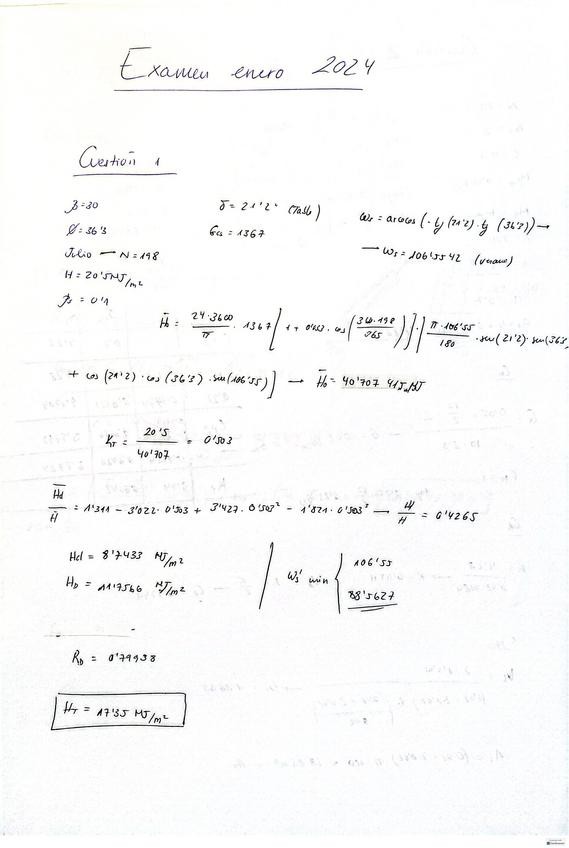 Examen enero 2024
Cuestión 1
β=30
Ø=36'3
Julio → N = 198
H = 20'5 MJ/m²
ρ = 0'1
δ = 21'2° (Tabla)
Gcs = 1367
Ws = arcocos (-tg (21'2) · tg (36'3)) →
→ Ws = 106'5542 (verano)
H̄o = 24·3600/π · 1367 [1 + 0'033 · cos (360·198/365)] [π·106'55/180 · sen(21'2) · sen(36'3)
+ cos (21'2) · cos (36'3) · sen(106'55)] → H̄o = 40'707
KT = 20'5/40'707 = 0'503
H̄d/H̄ = 1'311 - 3'022 · 0'503 + 3'427 · 0'503² - 1'821 · 0'503³ → Hd/H = 0'4265
Hd = 8'7433 MJ/m²
HD = 11'7566 MJ/m²
Ws' min { 106'55
88'5627
RD = 0'79938
HT = 17'35 MJ/m²